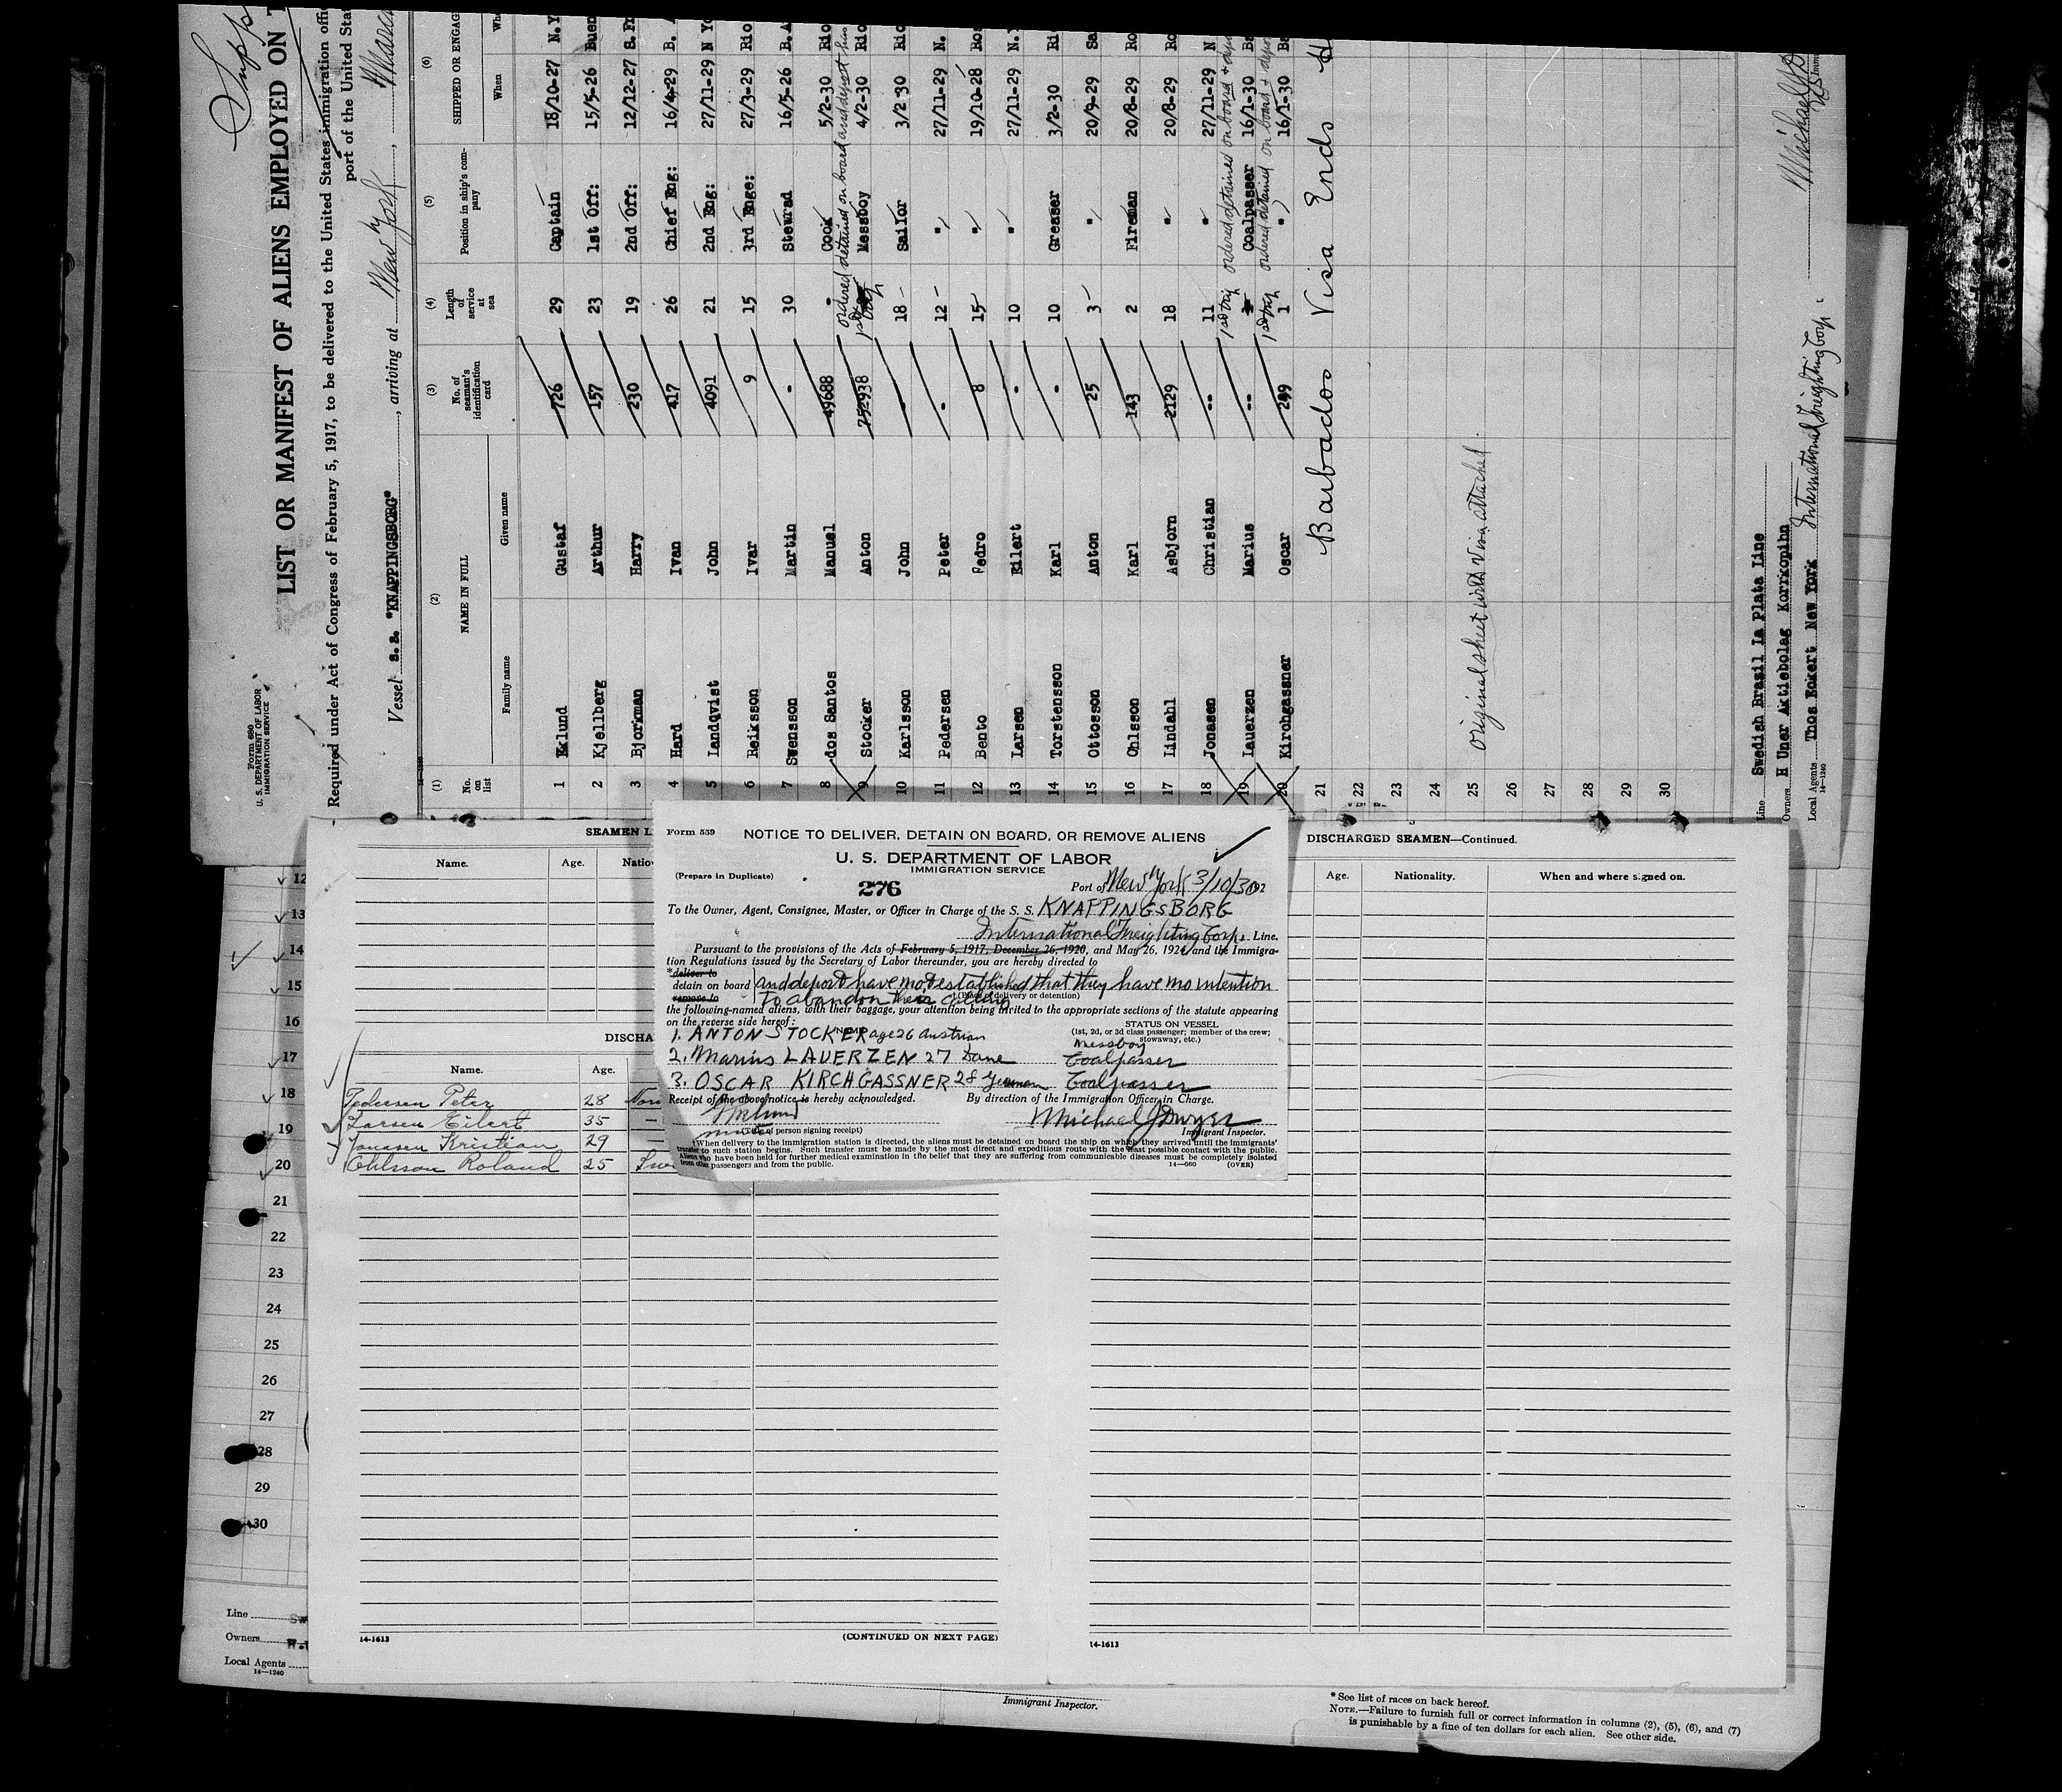 Supp
Form 680
U. S. DEPARTMENT OF LABOR
IMMIGRATION SERVICE
LIST OR MANIFEST OF ALIENS EMPLOYED ON
Required under Act of Congress of February 5, 1917, to be delivered to the United States immigration
port of the United
Vessel s.s. "KNAPPINGSBORG", arriving at New York,
(1) (2) (3) (4) (5) (6)
No. on list NAME IN FULL No. of seaman's identification card Length of service at sea Position in ship's company SHIPPED OR
Family name Given name When
1 Eklund Gustaf 726 29 Captain 18/10-27 N. Y
2 Kjellberg Arthur 157 23 1st Off: 15/5-26 Buen
3 Bjorkman Harry 230 19 2nd Off: 12/12-27 S. Fr
4 Hard Ivan 417 26 Chief Eng: 16/4-29 B.
5 Landqvist John 4091 21 2nd Eng: 27/11-29 N Yo
6 Reiksson Ivar 9 15 3rd Enge: 27/3-29 Rio
7 Swensson Martin - 30 Stewrad 16/5-26 B. A
8 dos Santos Manuel 49688 " Cook 5/2-30 Rio
ordered detained on board and deport him
9 Stocker Anton 752938 1st trip Messboy 4/2-30 Rio
10 Karlsson John - 18 Sailor 3/2-30 Rio
11 Pedersen Peter - 12 " 27/11-29 N.
12 Bento Pedro 8 15 " 19/10-28 Ros
13 Larsen Eilert - 10 " 27/11-29 N.Y
14 Torstensson Karl - 10 Greaser 3/2-30 Ri
15 Ottosson Anton 25 3 " 20/9-29 Sa
16 Ohlsson Karl 143 2 Fireman 20/8-29 Ro
17 Lindahl Asbjorn 2129 18 " 20/8-29 Ro
18 Jonasen Christian -- 11 " 27/11-29 N
1st trip ordered detained on board + depo
19 Lauerzen Marius -- Coalpasser 16/1-30 Ba
1st trip ordered detained on board + depor
20 Kirchgassner Oscar 249 1 " 16/1-30 Ba
21 Barbados Visa Ends
22
23
24
25 Original sheet with Visa attached.
26
27
28
29
30
Line Swedish Brasil La Plata Line
Owners H Uner Aktiebolag Korrkopihn
Local Agents Thos Eckert New York International Freighting Corp.
14-1240
SEAMEN
Name. Age.
Form 559
NOTICE TO DELIVER, DETAIN ON BOARD, OR REMOVE ALIENS
U. S. DEPARTMENT OF LABOR
IMMIGRATION SERVICE
(Prepare in Duplicate)
276
Port of New York 3/10/30 192
To the Owner, Agent, Consignee, Master, or Officer in Charge of the S. S. KNAPPINGSBORG
International Freighting Corp. Line.
Pursuant to the provisions of the Acts of February 5, 1917, December 26, 1920, and May 26, 1924, and the Immigra-
tion Regulations issued by the Secretary of Labor thereunder, you are hereby directed to
*deliver to
detain on board and deport have not established that they have no intention
remove to to abandon their calling
(Place of delivery or detention)
the following-named aliens, with their baggage, your attention being invited to the appropriate sections of the statute appearing
on the reverse side hereof:
NAME
STATUS ON VESSEL
(1st, 2d, or 3d class passenger; member of the crew; stowaway, etc.)
1. ANTON STOCKER age 26 Austrian Messboy
2. Marius LAUERZEN 27 Dane Coalpasser
3. OSCAR KIRCHGASSNER 28 German Coalpasser
Receipt of the above notice is hereby acknowledged. By direction of the Immigration Officer in Charge.
Michael J Dwyer
(Title of person signing receipt) Immigrant Inspector.
When delivery to the immigration station is directed, the aliens must be detained on board the ship on which they arrived until the immigrants'
transfer to such station begins. Such transfer must be made by the most direct and expeditious route with the least possible contact with the public.
Aliens who have been held for further medical examination in the belief that they are suffering from communicable diseases must be completely isolated
from other passengers and from the public.
14—660 (OVER)
DISCHARGED SEAMEN—Continued.
Age. Nationality. When and where signed on.
Name. Age.
Pedersen Peter 28
Larsen Eilert 35
Jonasen Kristian 29
Ohlsson Roland 25
14-1613
(CONTINUED ON NEXT PAGE)
14-1613
12
13
14
15
16
17
18
19
20
21
22
23
24
25
26
27
28
29
30
Line
Owners
Local Agents
14—1240
Immigrant Inspector.
* See list of races on back hereof.
NOTE.—Failure to furnish full or correct information in columns (2), (5), (6), and (7)
is punishable by a fine of ten dollars for each alien. See other side.